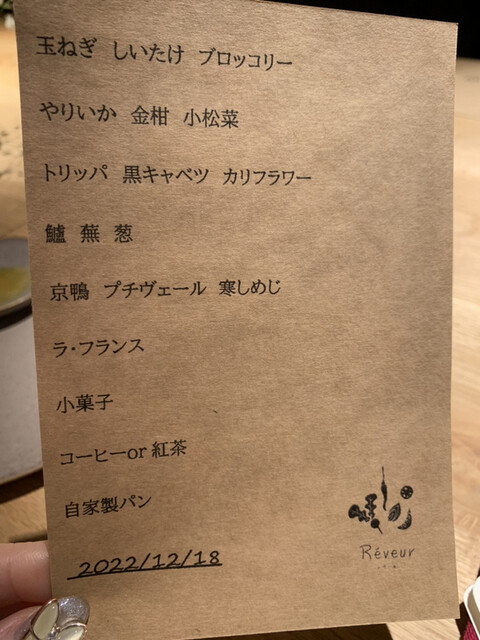 玉ねぎ しいたけ ブロッコリー
やりいか 金柑 小松菜
トリッパ 黒キャベツ カリフラワー
鱸 蕪 葱
京鴨 プチヴェール 寒しめじ
ラ・フランス
小菓子
コーヒーor紅茶
自家製パン
2022/12/18
Réveur